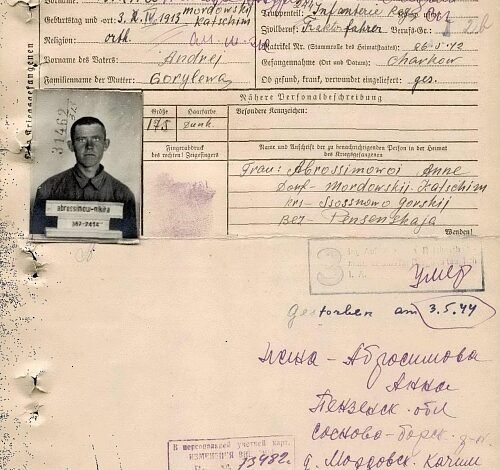 Geburtstag und -ort: 3. IV. 1913 mordowskij
Katschim
Religion: orth.
Vorname des Vaters: Andrej
Familienname der Mutter: Gorylewa
Infanterie Reg.
Zivilberuf: Traktorfahrer Berufs-Gr.
Matrikel Nr. (Stammrolle des Heimatstaates)
Gefangennahme (Ort und Datum): 26.5.42 Charkow
Ob gesund, krank, verwundet eingeliefert: ges.
Nähere Personalbeschreibung
Größe
Haarfarbe
Besondere Kennzeichen:
175
Dunk.
31462
abrossimow-nikita
Fingerabdruck
des rechten! Zeigefingers
Name und Anschrift der zu benachrichtigenden Person in der Heimat
des Kriegsgefangenen
Frau: Abrossimowoi Anne
Dorf- Mordowskij-Katschim
krs- Ssossnowo gorskij
Bez- Pensenskaja
Wenden!
умер
gestorben am 3.5.44
Жена - Абросимова
Анна
Пензенск. обл
Сосново-борск. р-н
д. Мордовск. Качим
В персональной учетной карт.
ИЗМЕНЕНИЯ